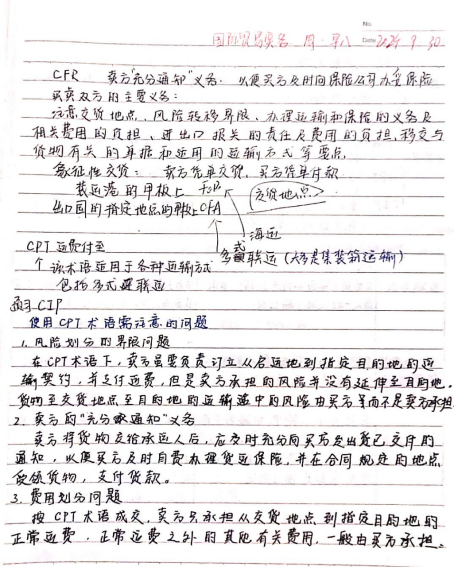 No.
国际贸易实务 周一早八 Date 2024 9 30
CFR 卖方"充分通知"义务，以便买方及时向保险公司办妥保险
买卖双方的主要义务：
注意交货地点、风险转移界限、办理运输和保险的义务及
相关费用的负担、进出口报关的责任及费用的负担，移交与
货物有关的单据和适用的运输方式等要点。
象征性交货：卖方凭单交货，买方凭单付款
装运港的甲板上 FOB 交货地点
出口国的指定地点的 FCA
海运
CPT 运费付至 多式联运（大多是集装箱运输）
个 该术语适用于各种运输方式
包括多式联运
CIP
使用 CPT 术语需注意的问题
1. 风险划分的界限问题
在CPT术语下，卖方虽要负责订立从启运地到指定目的地的运
输契约，并支付运费，但是卖方承担的风险并没有延伸至目的地。
货物至交货地点至目的地的运输途中的风险由买方而不是卖方承担
2. 卖方的"充分通知"义务
卖方将货物交给承运人后，应及时充分向买方发出货已交付的
通知，以便买方及时自费办理货运保险，并在合同规定的地点
受领货物，支付货款。
3. 费用划分问题
按 CPT 术语成交，卖方只承担从交货地点到指定目的地的
正常运费，正常运费之外的其他有关费用，一般由买方承担。